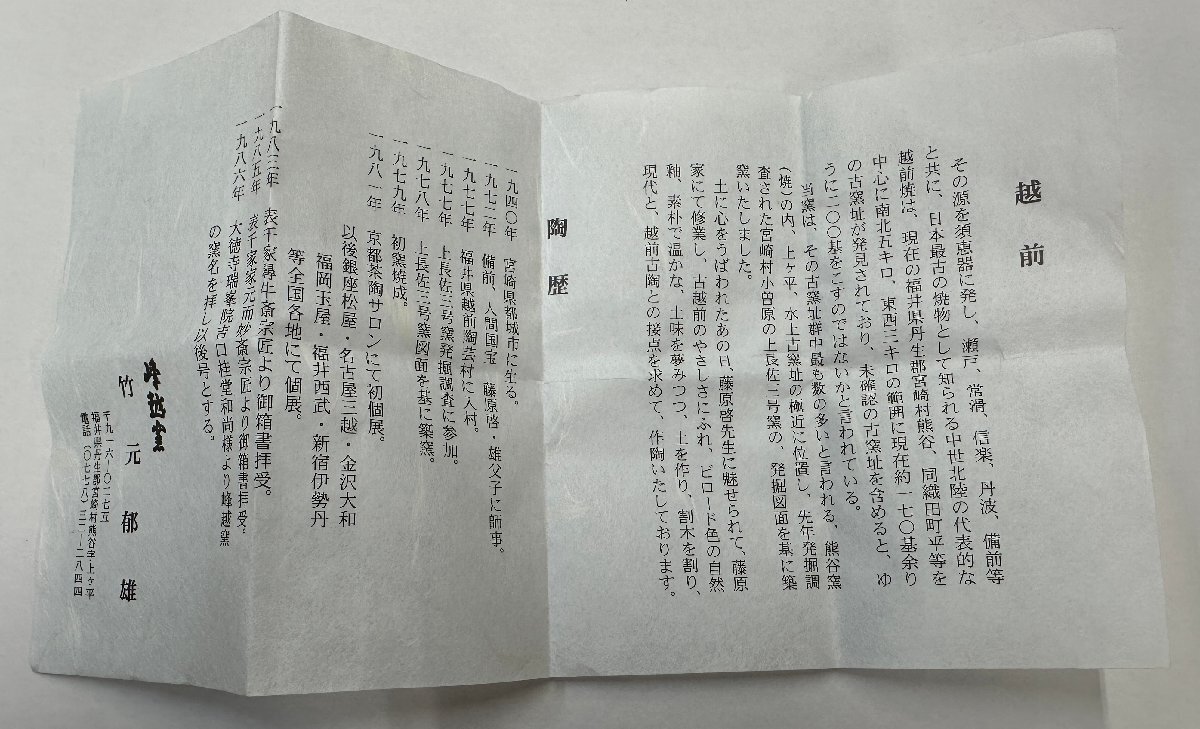 越前
その源を須恵器に発し、瀬戸、常滑、信楽、丹波、備前等
と共に、日本最古の焼物として知られる中世北陸の代表的な
越前焼は、現在の福井県丹生郡宮崎村熊谷、同織田町平等を
中心に南北五キロ、東西三キロの範囲に現在約一七〇基余り
の古窯址が発見されており、未確認の古窯址を含めると、ゆ
うに二〇〇基をこすのではないかと言われている。
当窯は、その古窯址群中最も数の多いと言われる、熊谷窯
(焼)の内、上ヶ平、水上古窯址の極近に位置し、先年発掘調
査された宮崎村小曽原の上長佐三号窯の、発掘図面を基に築
窯いたしました。
土に心をうばわれたあの日、藤原啓先生に魅せられて、藤原
家にて修業し、古越前のやさしさにふれ、ビロード色の自然
釉、素朴で温かな、土味を夢みつつ、土を作り、割木を割り、
現代と、越前古陶との接点を求めて、作陶いたしております。
陶歴
一九四〇年 宮崎県都城市に生る。
一九七二年 備前、人間国宝 藤原啓・雄父子に師事。
一九七七年 福井県越前陶芸村に入村。
一九七七年 上長佐三号窯発掘調査に参加。
一九七八年 上長佐三号窯図面を基に築窯。
一九七九年 初窯焼成。
一九八一年 京都茶陶サロンにて初個展。
以後銀座松屋・名古屋三越・金沢大和
福岡玉屋・福井西武・新宿伊勢丹
等全国各地にて個展。
一九八三年 表千家尋牛斎宗匠より御箱書拝受。
一九八五年 表千家家元而妙斎宗匠より御箱書拝受。
一九八六年 大徳寺瑞峯院吉口桂堂和尚様より峰越窯
の窯名を拝し以後号とする。
峰越窯
竹元郁雄
〒九一六-〇二七五
福井県丹生郡宮崎村熊谷字上ヶ平
電話(〇七七八)三二-二八四四